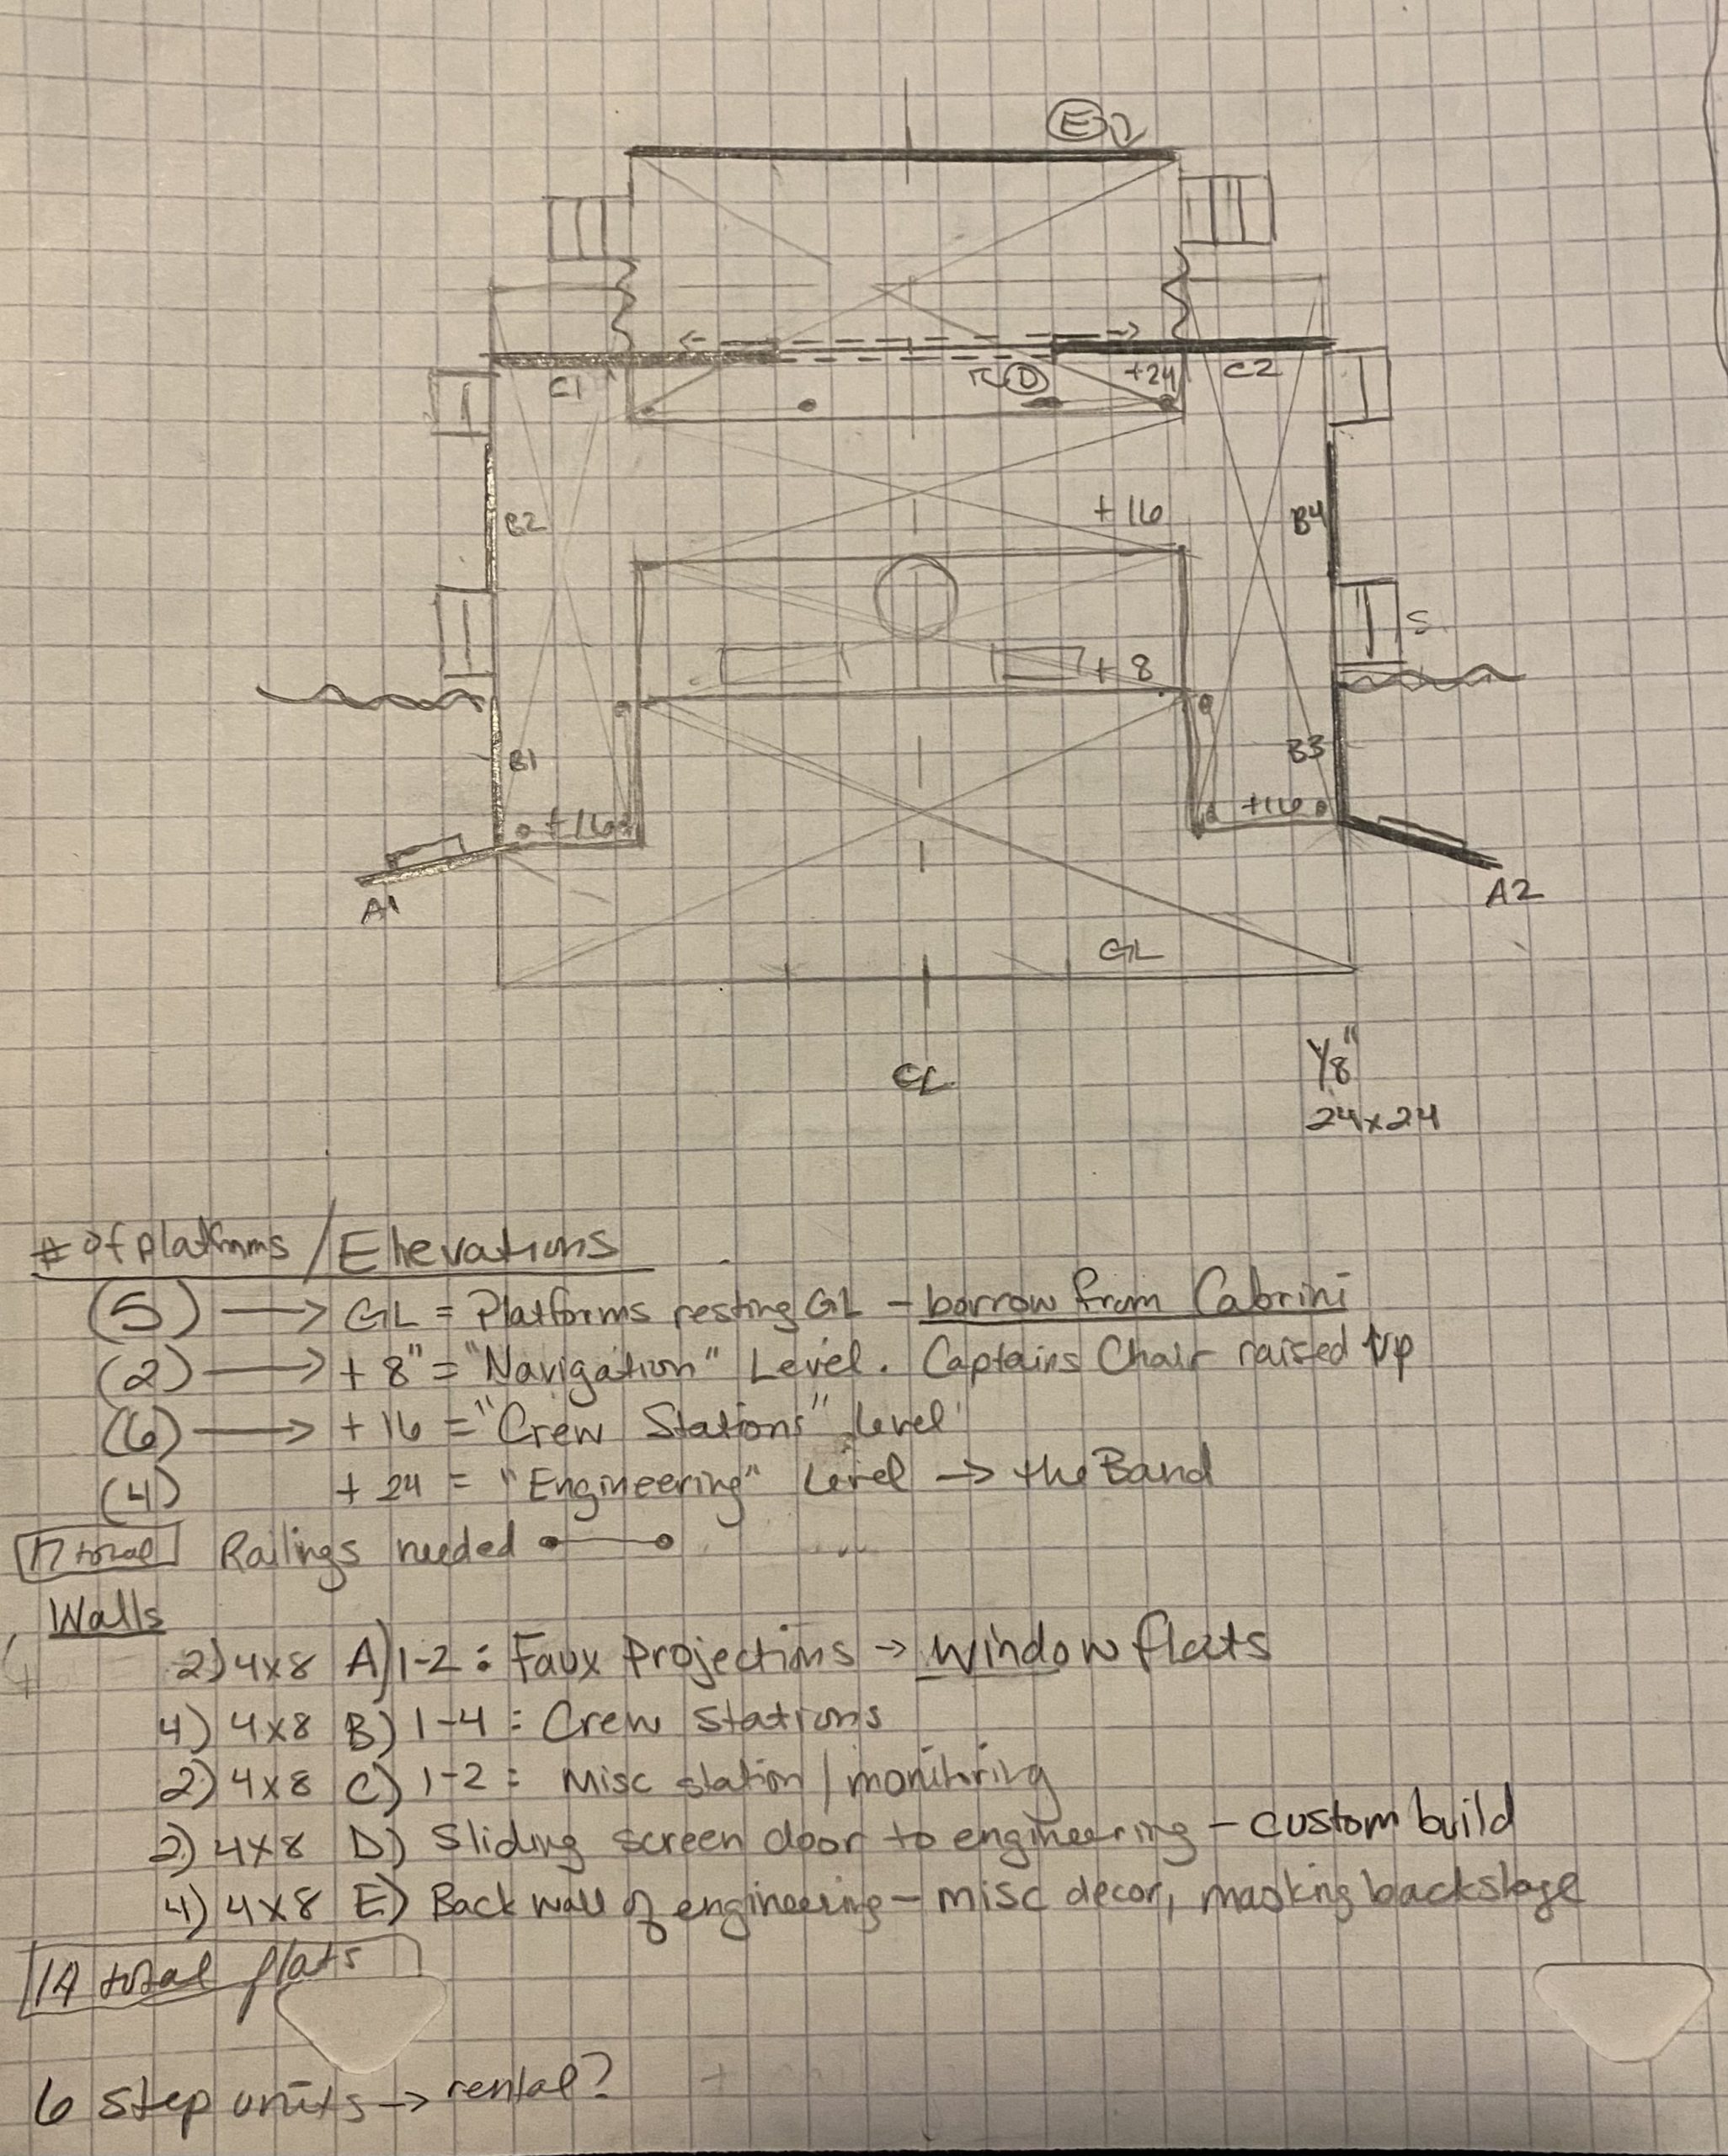 E
C1
D
+24
C2
B2
+16
B4
+8
S
B1
B3
+16
+16
A1
A2
GL
CL
1/8"
24x24
# of platforms / Elevations
(5) → GL = Platforms resting GL - borrow from Cabrini
(2) → + 8" = "Navigation" Level. Captains Chair raised up
(6) → + 16 = "Crew Stations" level
(4) + 24 = "Engineering" Level → the Band
17 total Railings needed
Walls
2) 4x8 A) 1-2: Faux Projections → window flats
4) 4x8 B) 1-4: Crew Stations
2) 4x8 C) 1-2: Misc station / monitoring
2) 4x8 D) Sliding screen door to engineering - custom build
4) 4x8 E) Back wall of engineering - misc decor, masking backstage
14 total flats
6 step units → rental?